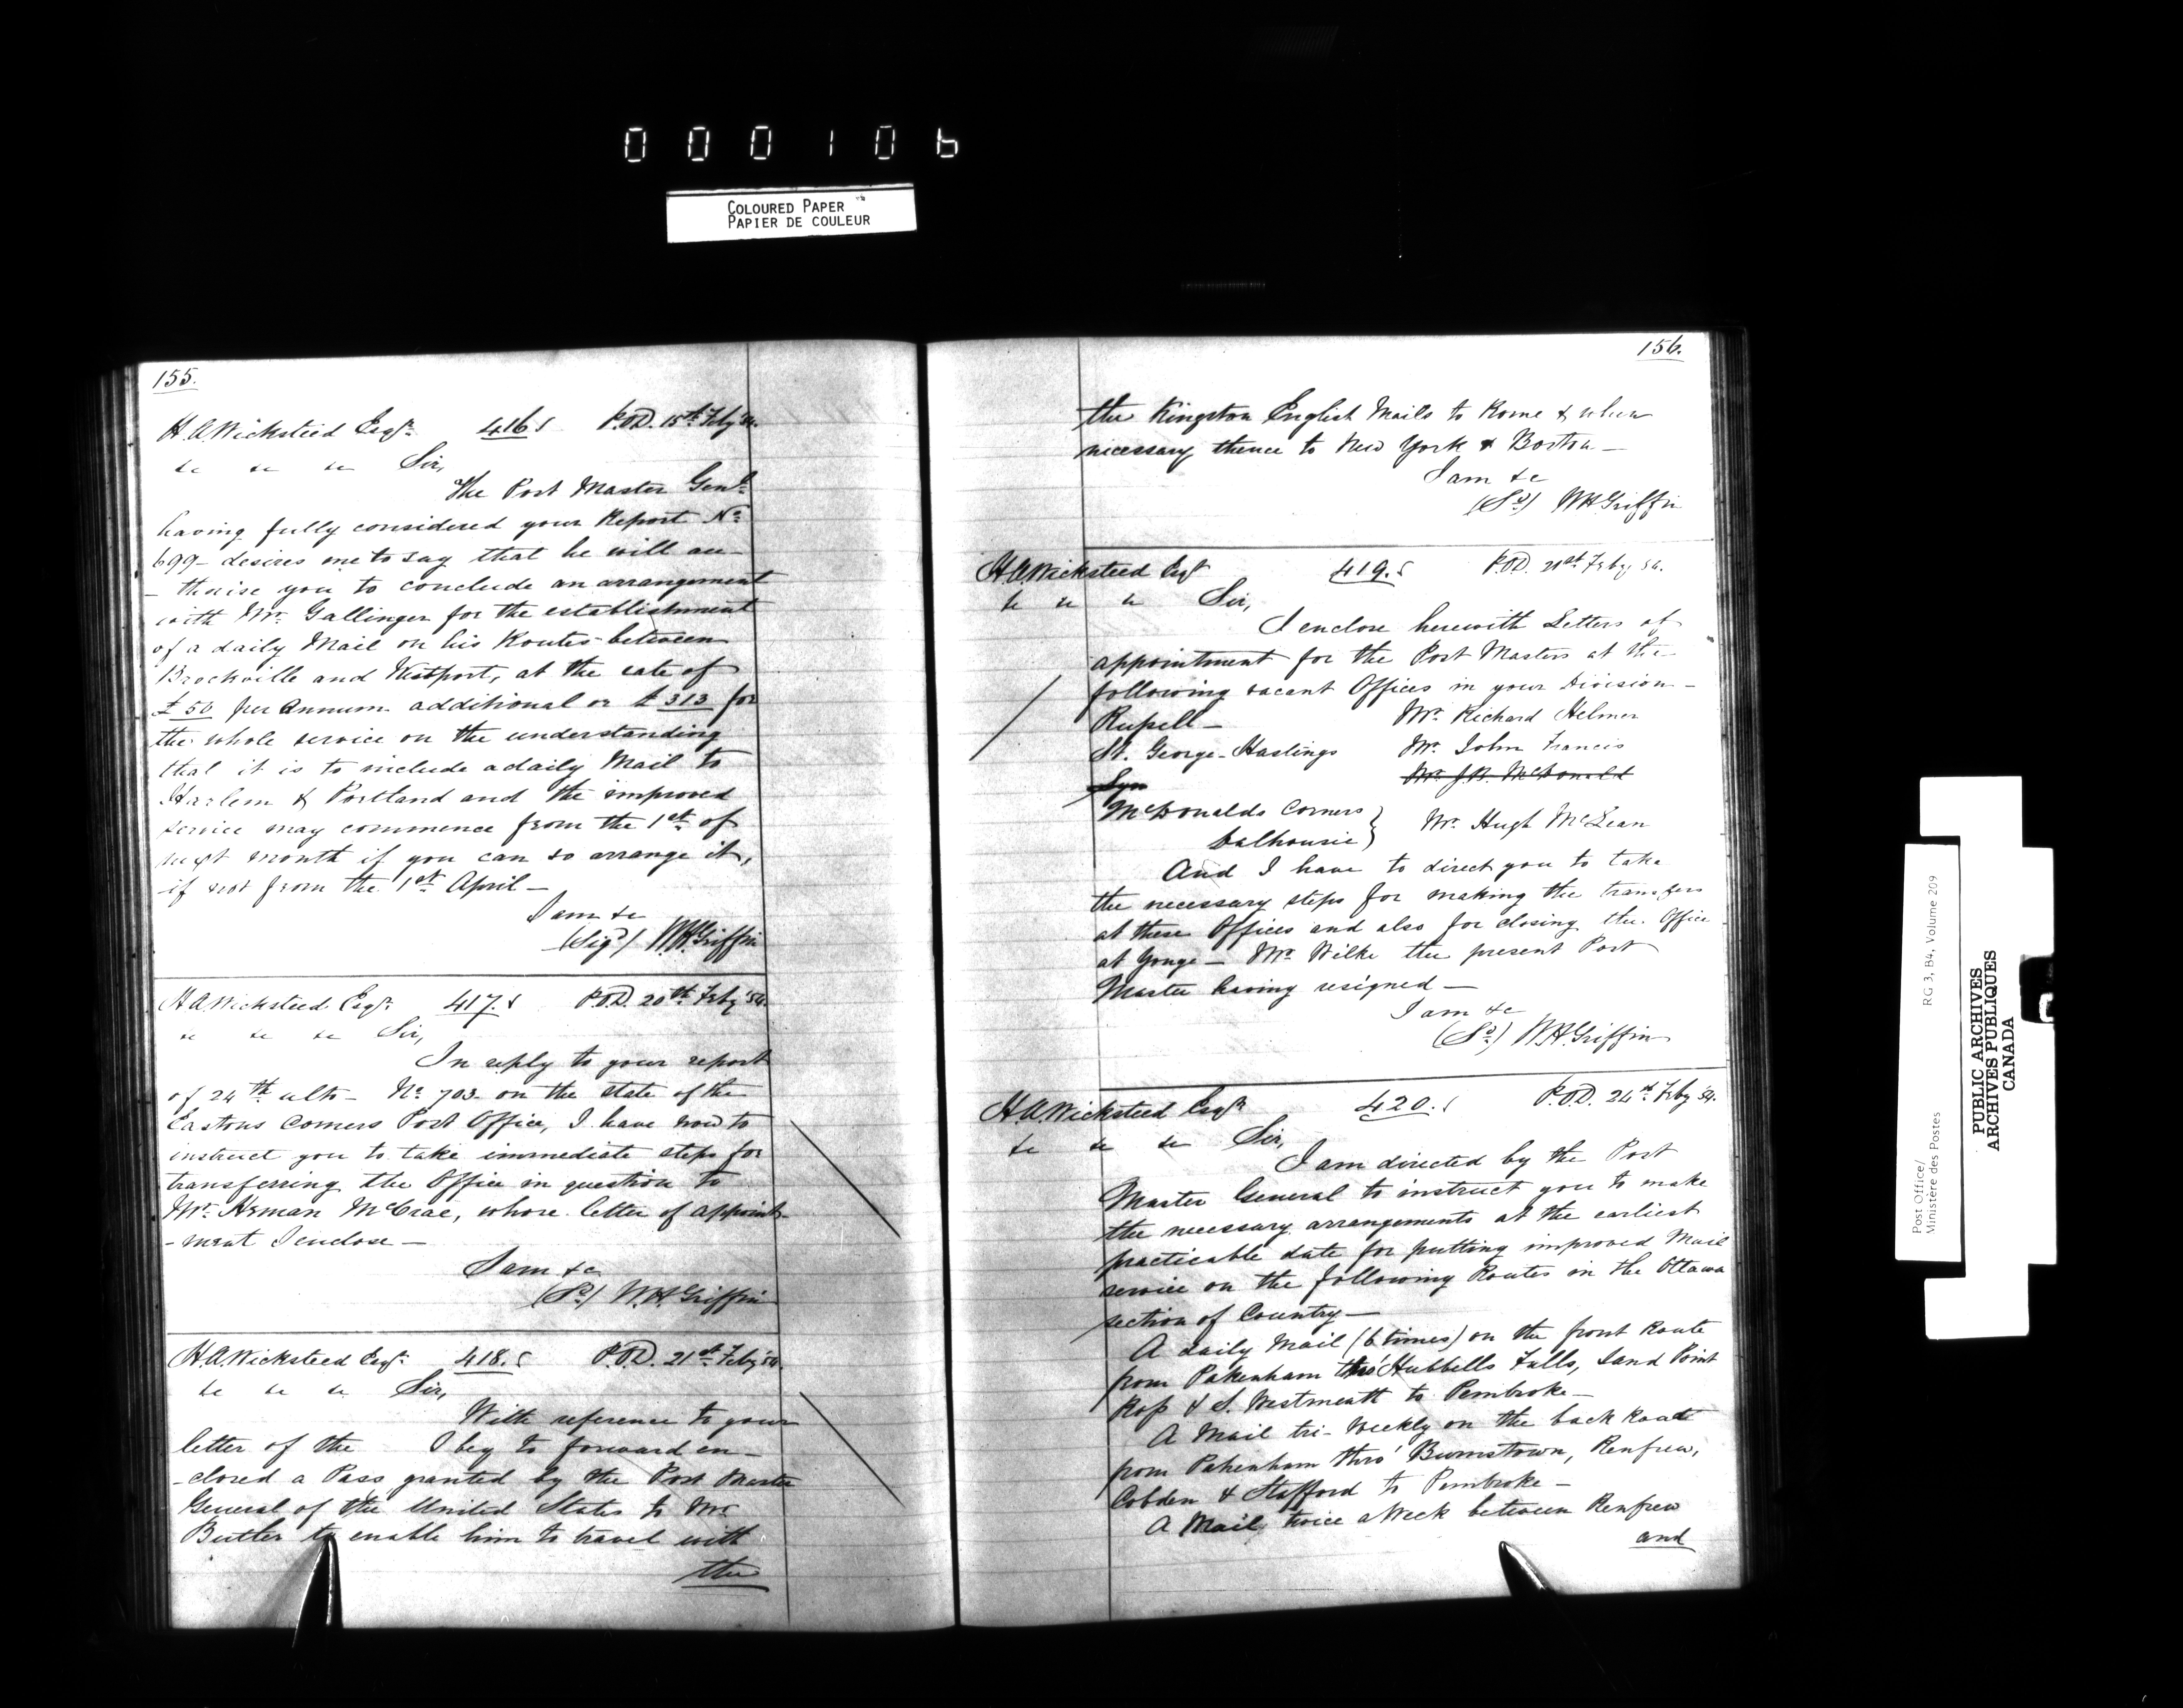 000106
COLOURED PAPER
PAPIER DE COULEUR
155.
H.A. Wicksteed Esqr. 416 S P.O.D. 15th Feby '54.
&c &c &c Sir,
The Post Master Genl.
having fully considered your Report No.
699 - desires me to say that he will au-
- thorise you to conclude an arrangement
with Mr. Gallinger for the establishment
of a daily Mail on his Routes between
Brockville and Westport, at the rate of
£50 per Annum additional or £313 for
the whole service on the understanding
that it is to include a daily Mail to
Harlem & Portland and the improved
service may commence from the 1st of
next month if you can so arrange it,
if not from the 1st April -
I am &c
(Sigd) W.H. Griffin
H.A. Wicksteed Esqr. 417. S P.O.D. 20th Feby '54.
&c &c &c Sir,
In reply to your report
of 24th ulto - No. 703 on the state of the
Eastons Corners Post Office, I have now to
instruct you to take immediate steps for
transferring the Office in question to
Mr. Heman McCrae, whose letter of appoint-
- ment I enclose -
I am &c
(Sd.) W.H. Griffin
H.A. Wicksteed Esqr. 418. S P.O.D. 21st Feby '54.
&c &c &c Sir,
With reference to your
letter of the I beg to forward en-
- closed a Pass granted by the Post Master
General of the United States to Mr.
Butler to enable him to travel with
the
156.
the Kingston English Mails to Rome & when
necessary thence to New York & Boston -
I am &c
(Sd.) W.H. Griffin
H.A. Wicksteed Esqr 419. S P.O.D. 21st Feby 54.
&c &c &c Sir,
I enclose herewith Letters of
appointment for the Post Masters at the
following vacant Offices in your Division -
Russell - Mr. Richard Helmer
St. George - Hastings Mr. John Francis
Syn Mr. J.R. McDonald
McDonalds Corners }
Dalhousie } Mr. Hugh McLean
And I have to direct you to take
the necessary steps for making the transfers
at these Offices and also for closing the Office
at Yonge - Mr. Wilke the present Post
Master having resigned -
I am &c
(Sd.) W.H. Griffin
H.A. Wicksteed Esqr 420. S P.O.D. 24th Feby '54.
&c &c &c Sir,
I am directed by the Post
Master General to instruct you to make
the necessary arrangements at the earliest
practicable date for putting improved Mail
service on the following Routes in the Ottawa
section of Country -
A daily Mail (6 times) on the front Route
from Pakenham thro' Hubbells Falls, Sand Point
Ross & S. Westmeath to Pembroke -
A Mail tri-Weekly on the back Route
from Pakenham thro' Burnstown, Renfrew,
Cobden & Stafford to Pembroke -
A Mail twice a Week between Renfrew
and
Post Office/
Ministère des Postes
RG 3, B4, Volume 209
PUBLIC ARCHIVES
ARCHIVES PUBLIQUES
CANADA